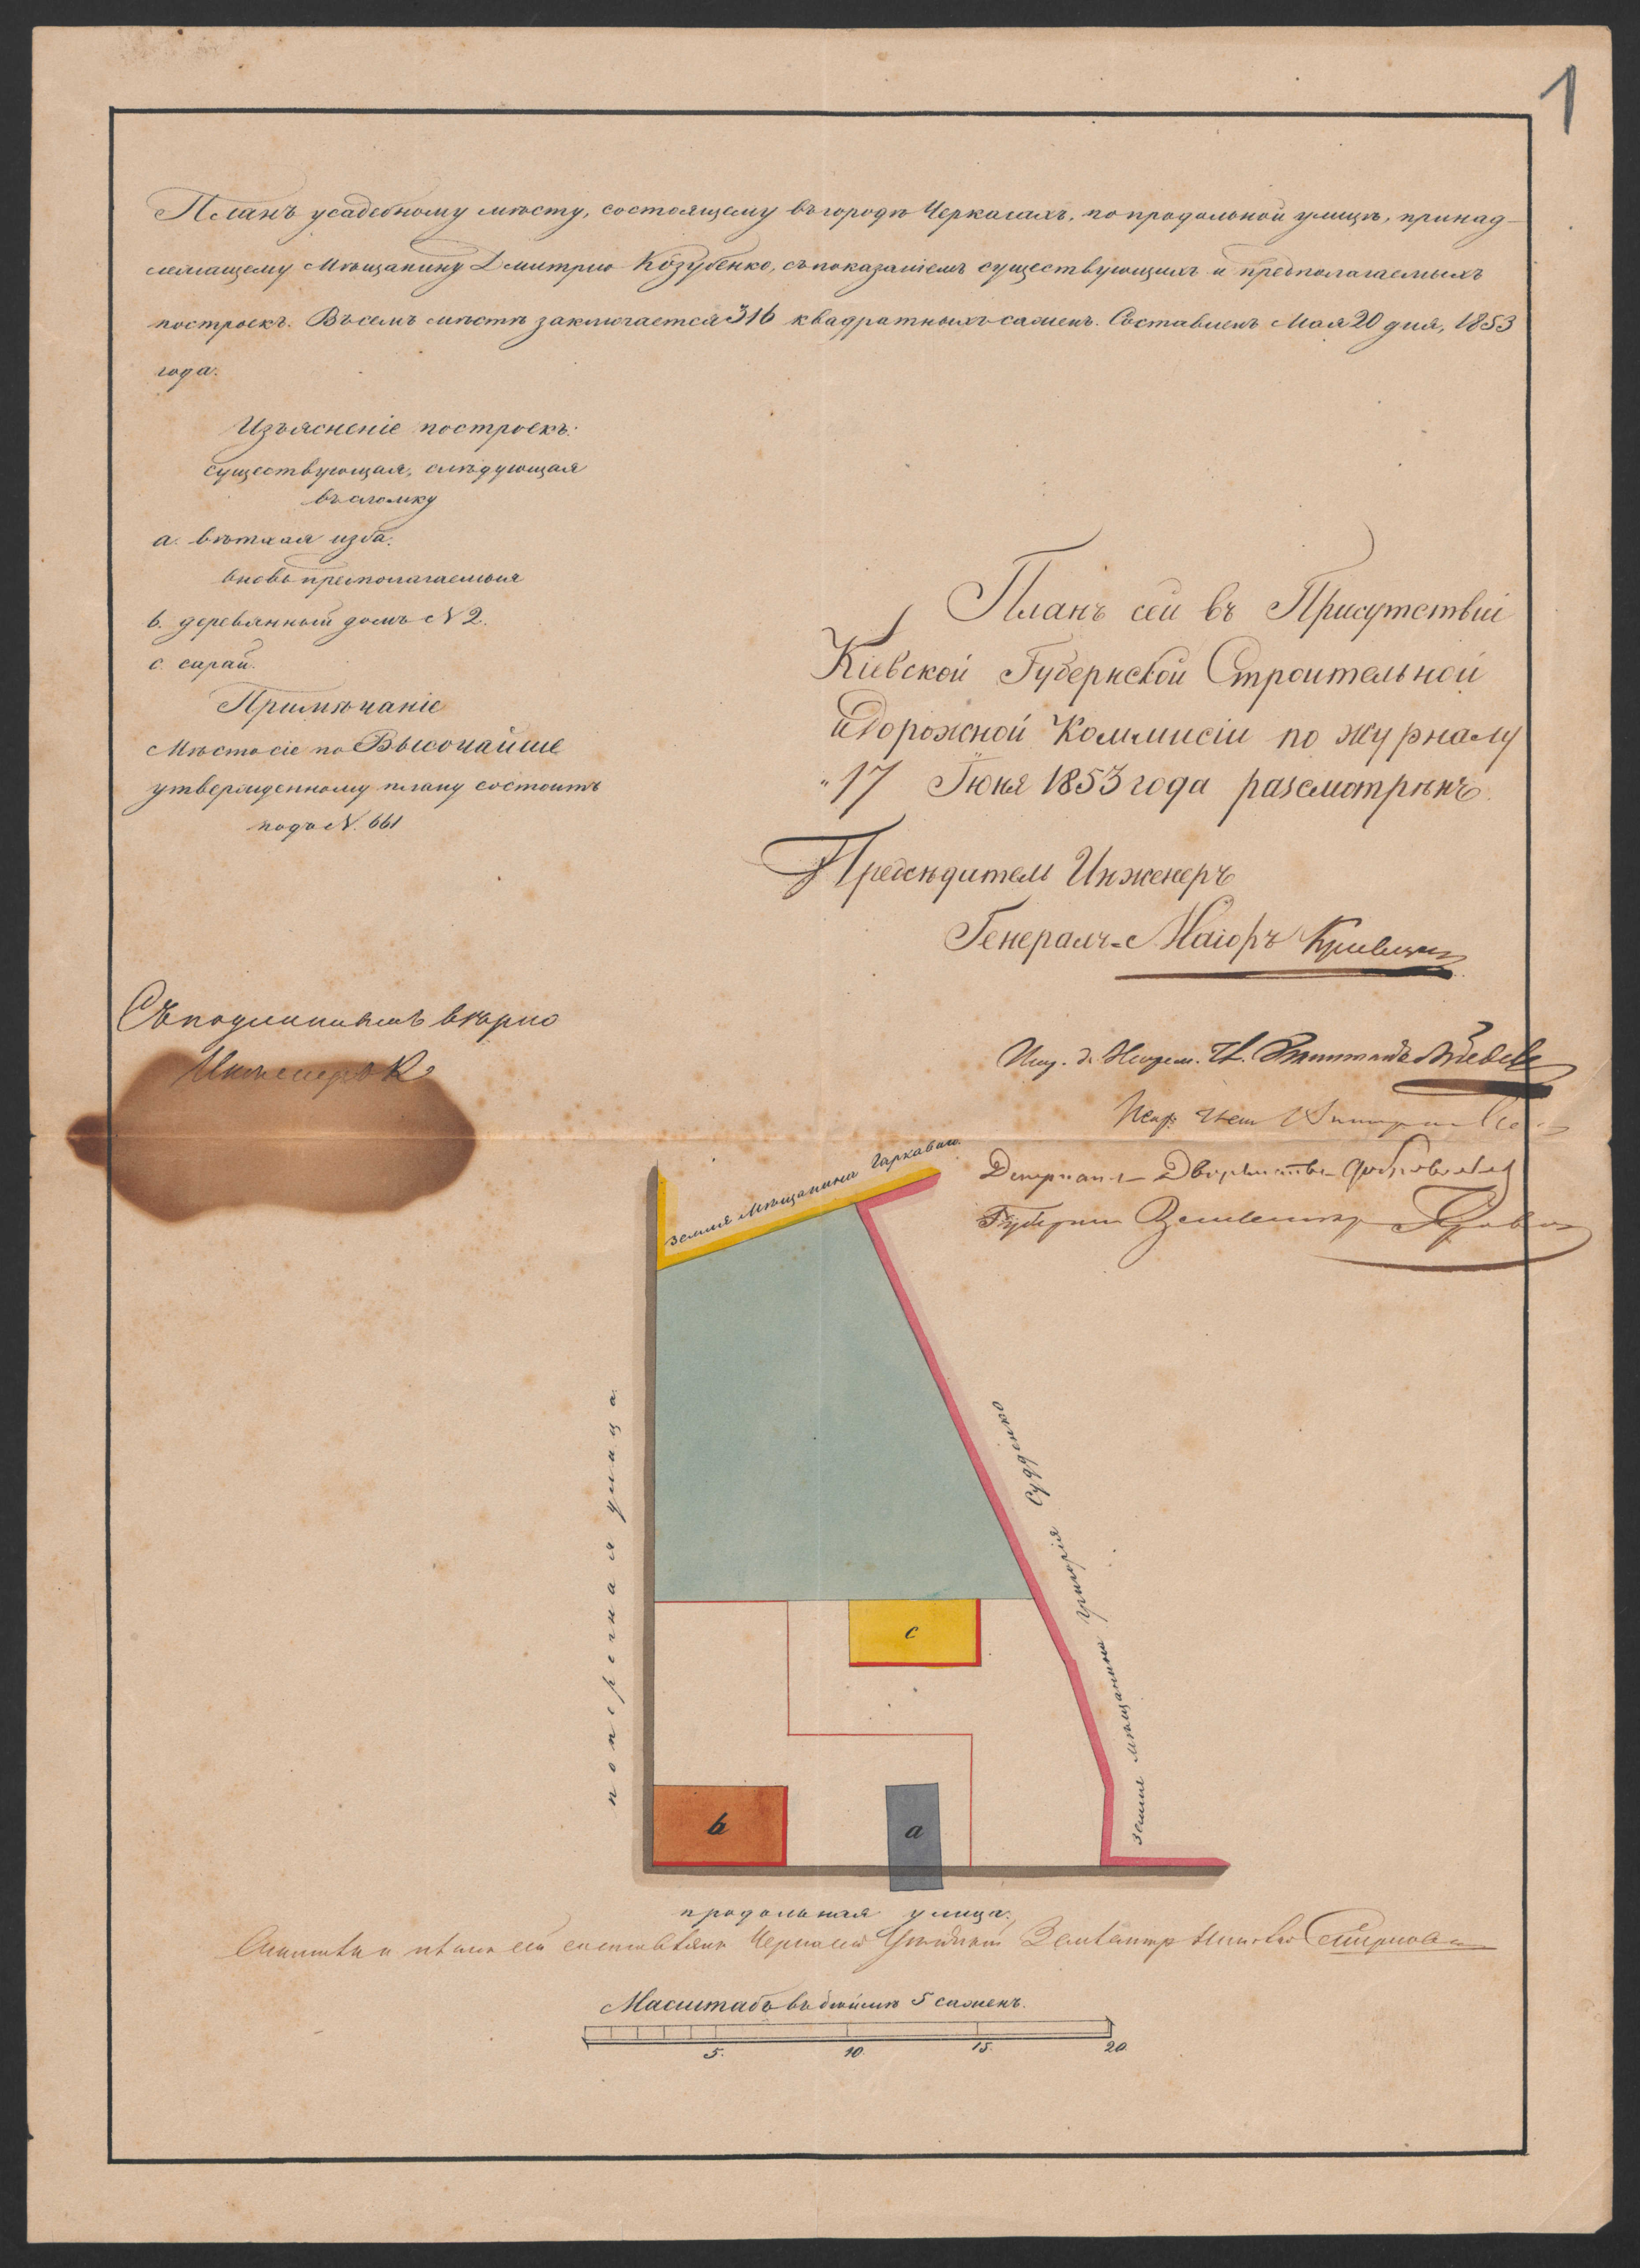 1
Планъ усадебному мѣсту, состоящему въ городѣ Черкасахъ, по продольной улицѣ, принад-
лежащему Мѣщанину Дмитрію Козубенко, съ показаніемъ существующихъ и предполагаемыхъ
построекъ. Въ семъ мѣстѣ заключается 316 квадратныхъ сажень. Составленъ Мая 20 дня, 1853
года.
Изъясненіе построекъ:
существующая, слѣдующая
въ сломку
a. ветхая изба.
вновь предполагаемыя
b. деревянный домъ N 2.
c. сарай.
Примѣчаніе
Мѣсто сіе по Высочайше
утвержденному плану состоитъ
подъ N. 661
Планъ сей въ Присутствіи
Кіевской Губернской Строительной
и Дорожной Коммисіи по журналу
"17 Іюня 1853 года разсмотрѣнъ.
Предсѣдатель Инженеръ
Генералъ-Маіоръ
Съ подлиннымъ вѣрно
Инженеръ
Губерн Землемѣр
земля Мѣщанина Гаркаваго.
поперечная улица.
земля мѣщанина Григорія Судденко
c
b
a
продольная улица.
планъ сей составлялъ Уѣздный Землемѣръ Смирновъ
Масштабъ въ дюймѣ 5 сажень.
5. 10. 15. 20.